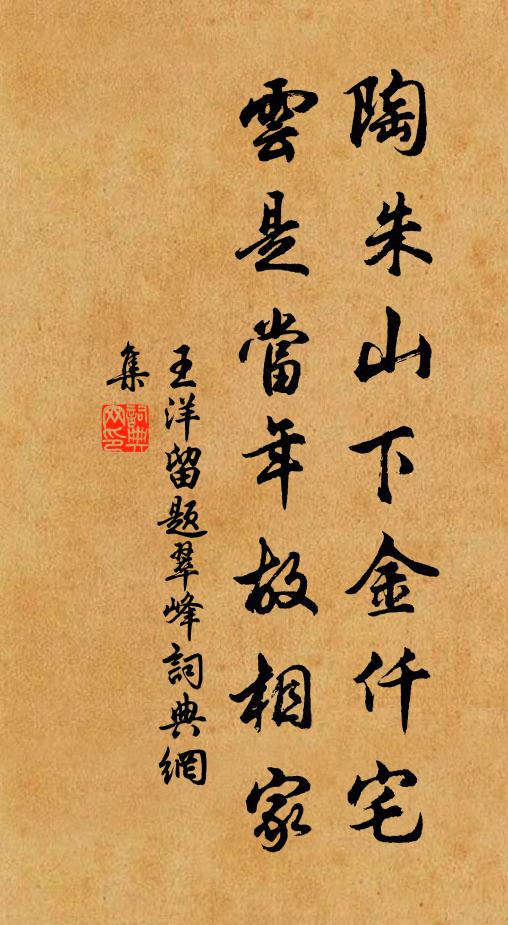 陶朱山下金仟宅
雲是當年故相家
王洋留題翠峰詞典網
集
詞典
網印